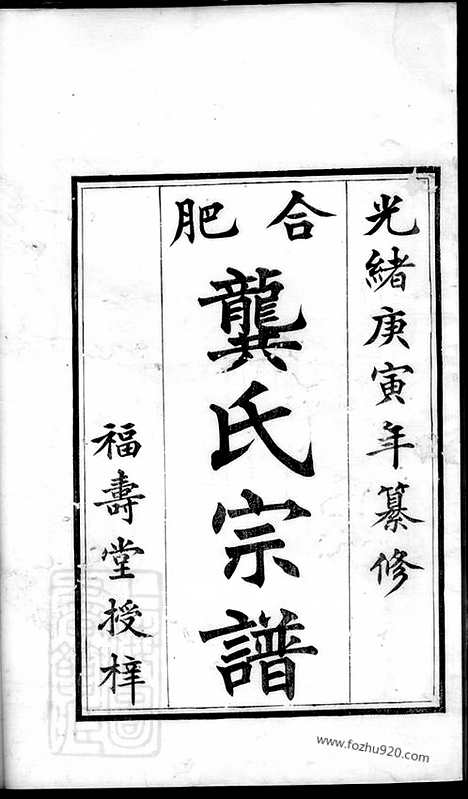 光緒庚寅年纂修
合肥
龔氏宗譜
福壽堂授梓
www.fozhu920.com